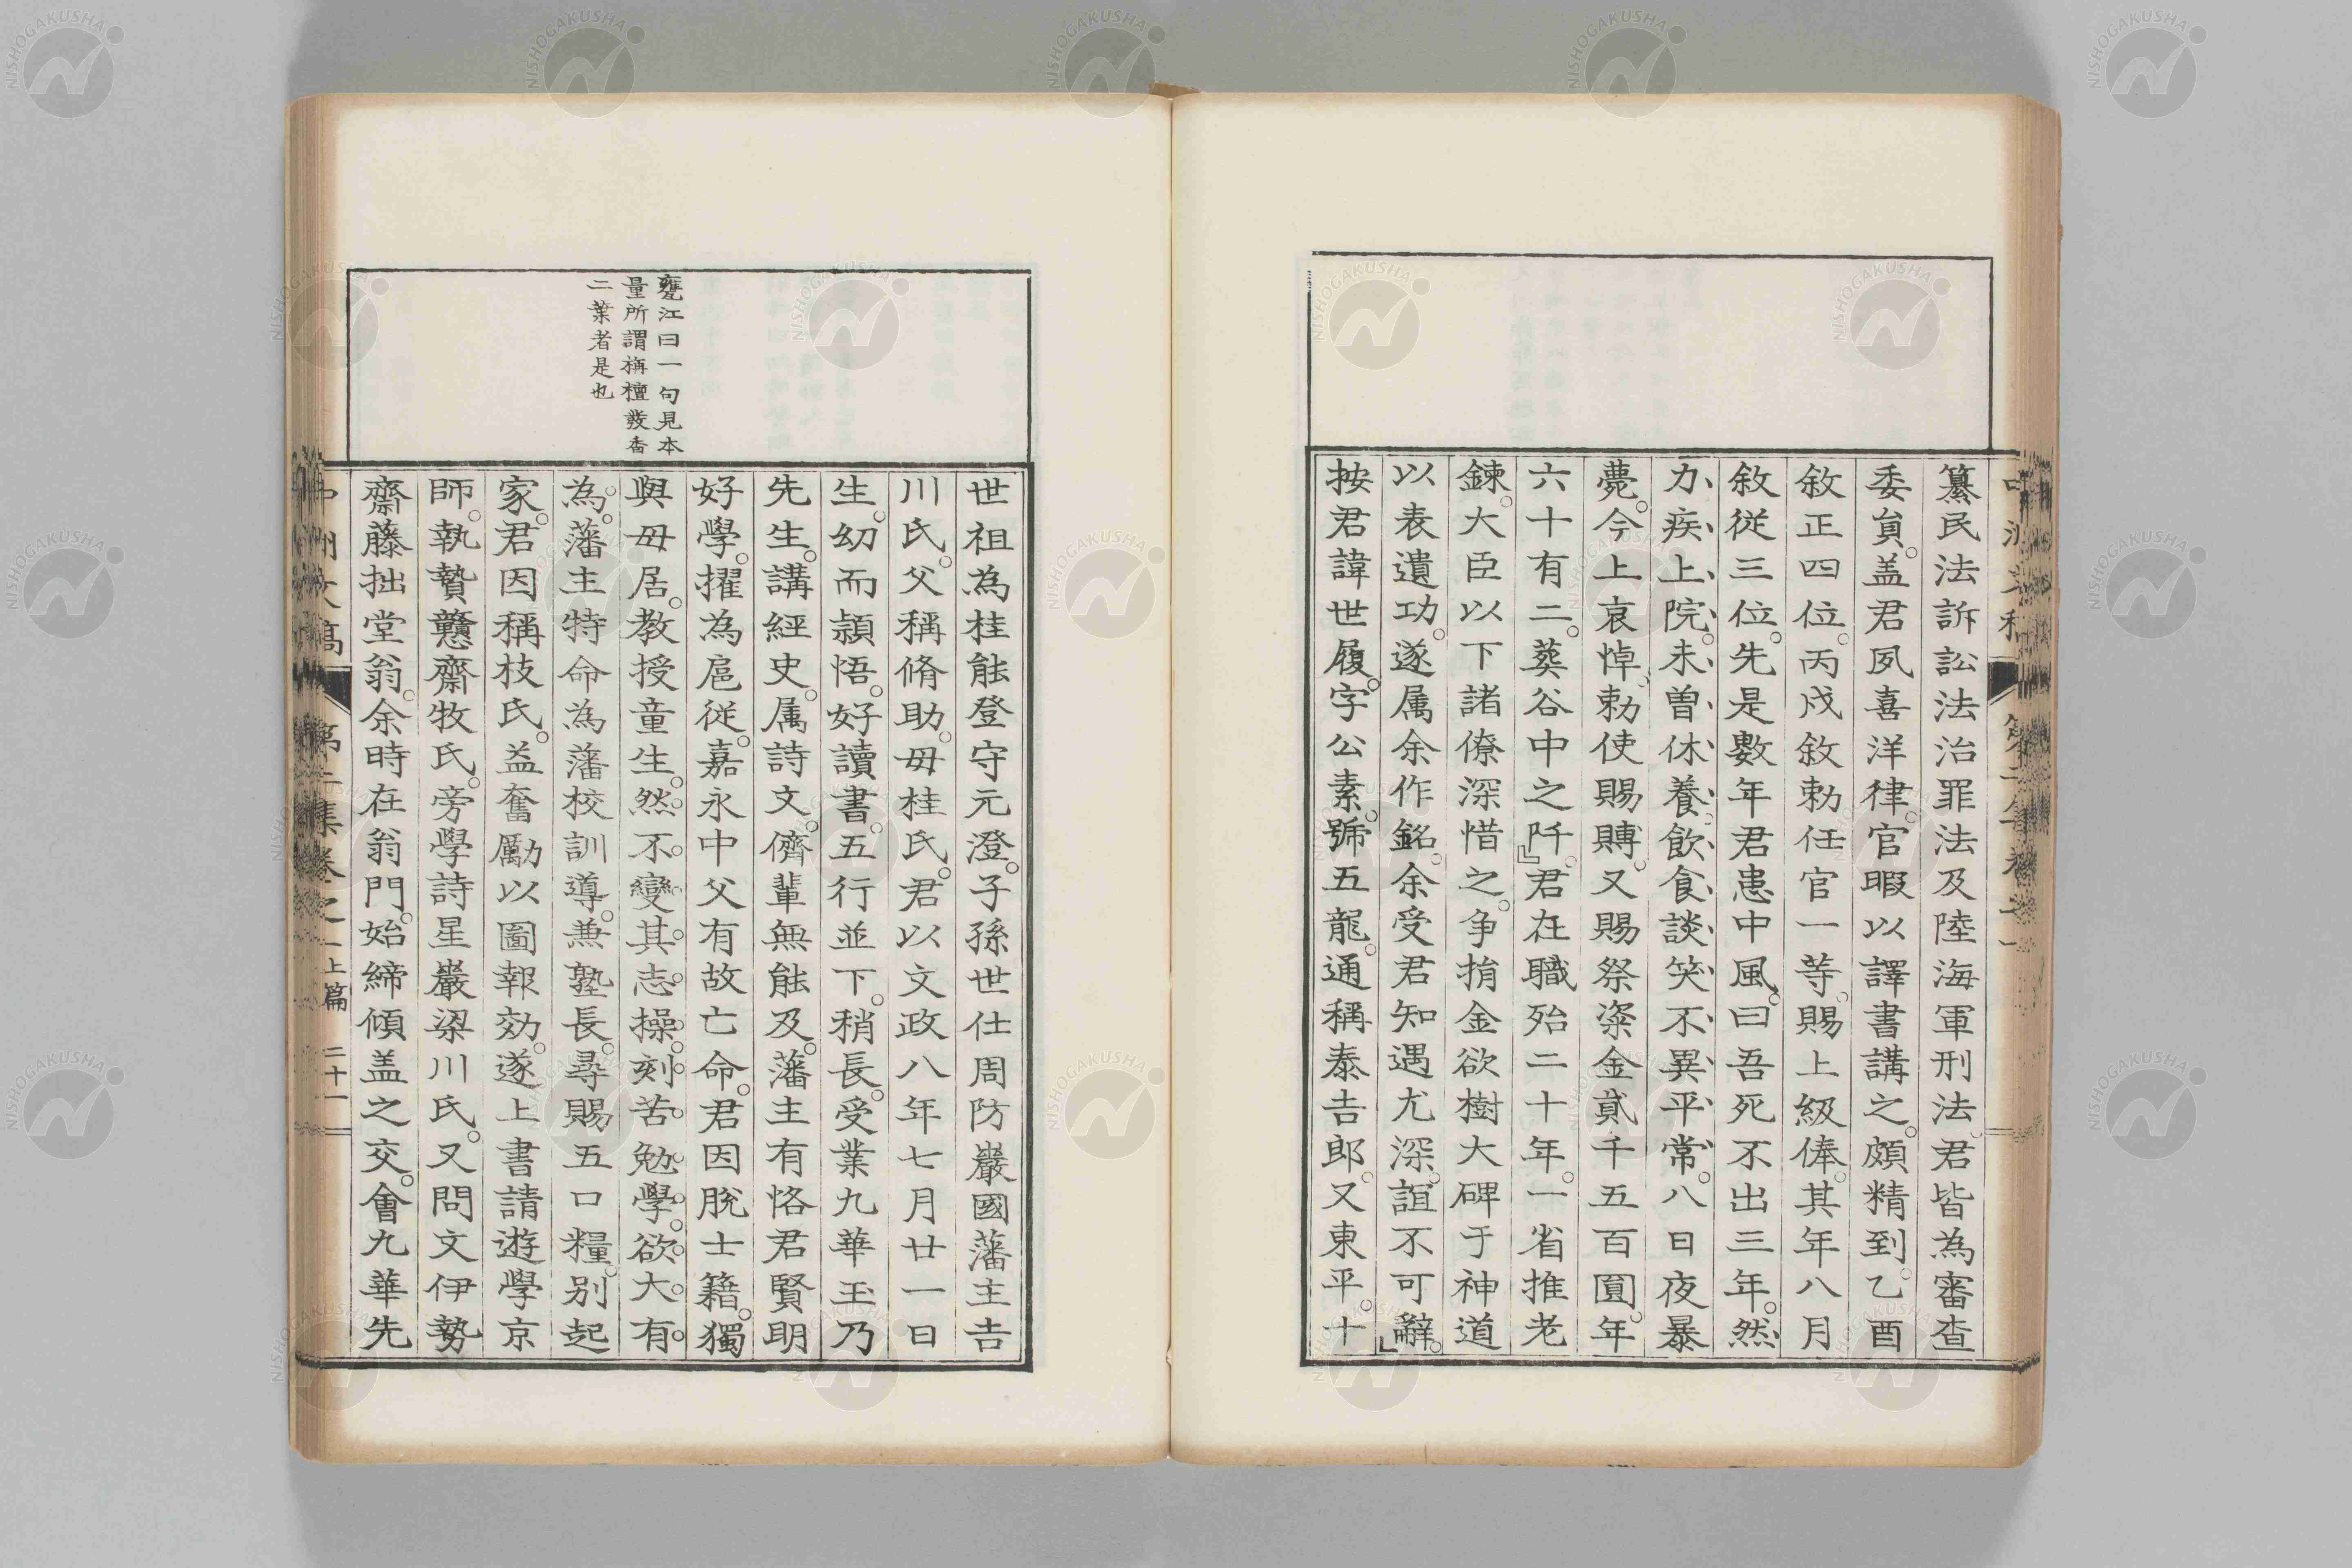 纂民法訴訟法治罪法及陸海軍刑法君皆為審查
委員。盖君夙喜洋律。官暇以譯書講之。頗精到。乙酉
敘正四位。丙戌敘勅任官一等。賜上級俸。其年八月
敘從三位。先是數年君患中風。曰吾死不出三年。然
力疾上院。未曾休養。飲食談笑不異平常。八日夜暴
薨。今上哀悼、勅使賜賻。又賜祭粢金貳千五百圓。年
六十有二。葬谷中之阡。』君在職殆二十年。一省推老
鍊。大臣以下諸僚深惜之。争捐金欲樹大碑于神道
以表遺功。遂属余作銘。余受君知遇尤深。誼不可辭。』
按君諱世履。字公素。號五龍。通稱泰吉郎。又東平。十
世祖為桂能登守元澄。子孫世仕周防巖國藩主吉
川氏。父稱脩助。母桂氏。君以文政八年七月廿一日
生。幼而頴悟。好讀書。五行並下。稍長。受業九華玉乃
先生。講經史。属詩文。儕輩無能及。藩主有恪君賢明
好學。擢為扈從。嘉永中父有故亡命。君因脫士籍。獨
與母居。教授童生。然不變其志操。刻苦勉學。欲大有
為。藩主特命為藩校訓導。兼塾長。尋賜五口糧。別起
家。君因稱枝氏。益奮勵以圖報効。遂上書請遊學京
師。執贄戇齋牧氏。旁學詩星巖梁川氏。又問文伊勢
齋藤拙堂翁。余時在翁門。始締傾盖之交。會九華先
甕江曰一句見本
量所謂栴檀發香
二葉者是也
中洲文稿 第二集卷之一 上篇 二十一